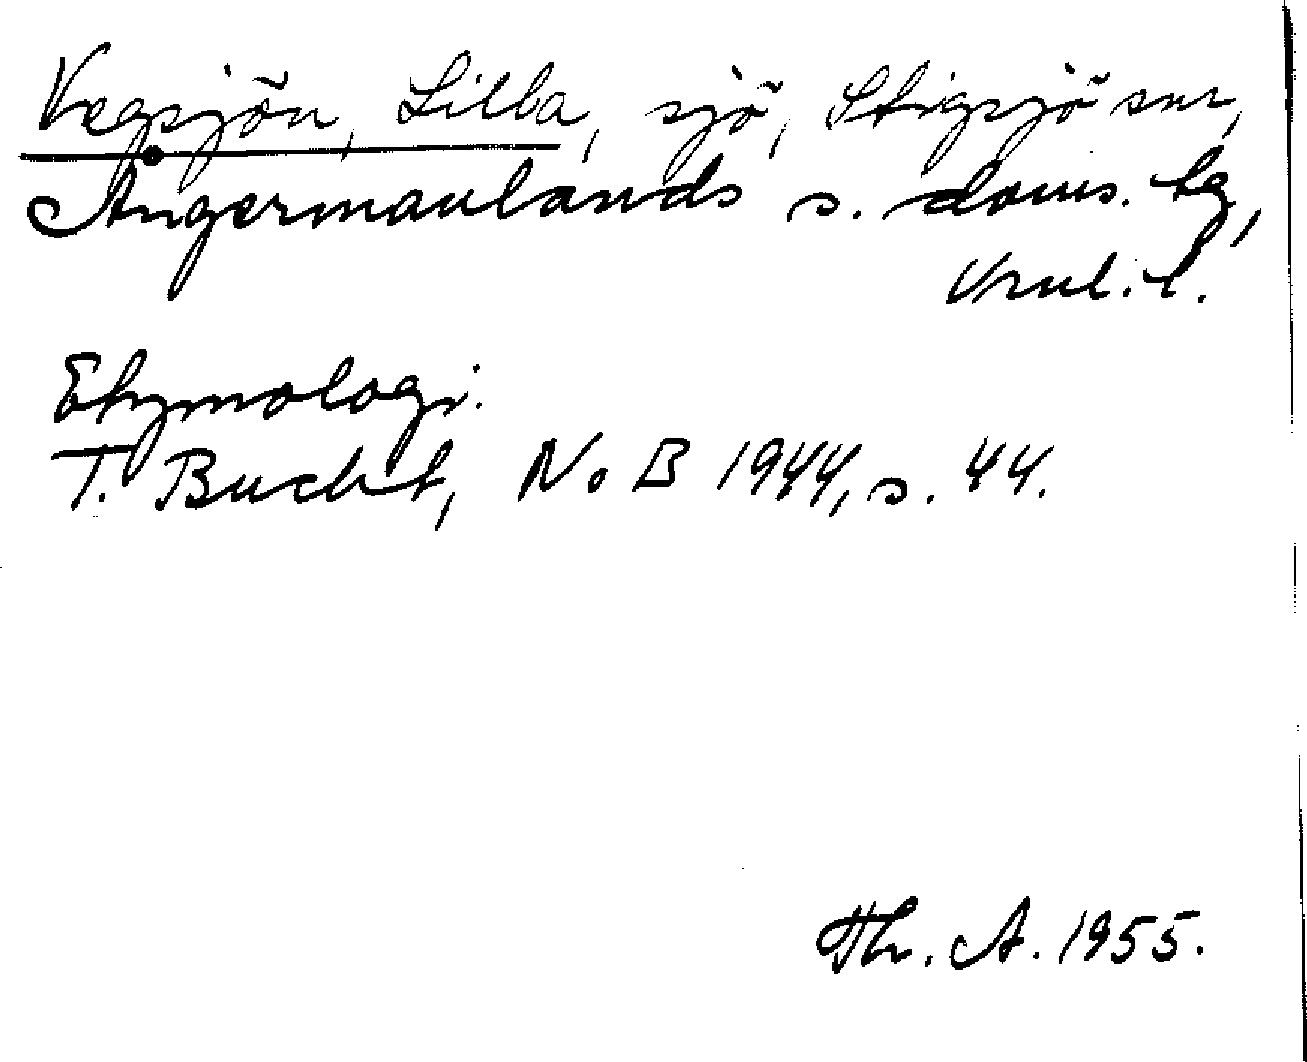 Vegsjön, Lilla, sjö, Stigsjö sn,
Ångermanlands s. doms. tg,
Vnl. l.
Etymologi:
T. Bucht, NoB 1944, s. 44.
Th. A. 1955.